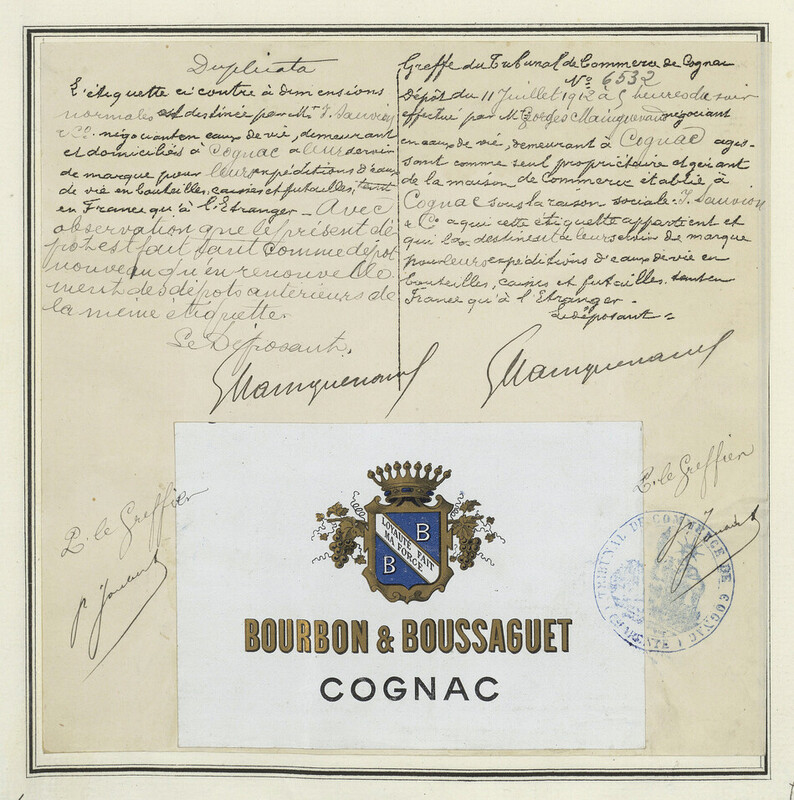 Duplicata
L'étiquette ci contre à dimensions
normales est destinée par Mrs J. Sauvion
& Co. négociants en eaux de vie, demeurant
et domiciliés à Cognac à leur servir
de marque pour leurs expéditions d'eaux
de vie en bouteilles, caisses et futailles, tant
en France qu'à l'Etranger. Avec
observation que le présent dé
pôt est fait tant comme dépôt
nouveau qu'en renouvelle
ment des dépôts antérieurs de
la même étiquette.
Le Déposant,
GMainguenaud
Greffe du Tribunal de Commerce de Cognac
No 6532
Dépôt du 11 Juillet 1912 à 5 heures du soir
effectué par M. Georges Mainguenaud négociant
en eaux de vie, demeurant à Cognac agis-
sant comme seul propriétaire et gérant
de la maison de Commerce établie à
Cognac sous la raison sociale: J. Sauvion
& Co a qui cette étiquette appartient et
qui la destinent à leur servir de marque
pour leurs expéditions d'eaux de vie en
bouteilles, caisses et futailles. tant en
France qu'à l'Etranger.
Le déposant =
GMainguenaud
P. le Greffier
P. le Greffier
LOYAUTÉ FAIT
MA FORCE
B
B
BOURBON & BOUSSAGUET
COGNAC
TRIBUNAL DE COMMERCE DE COGNAC
(CHARENTE)